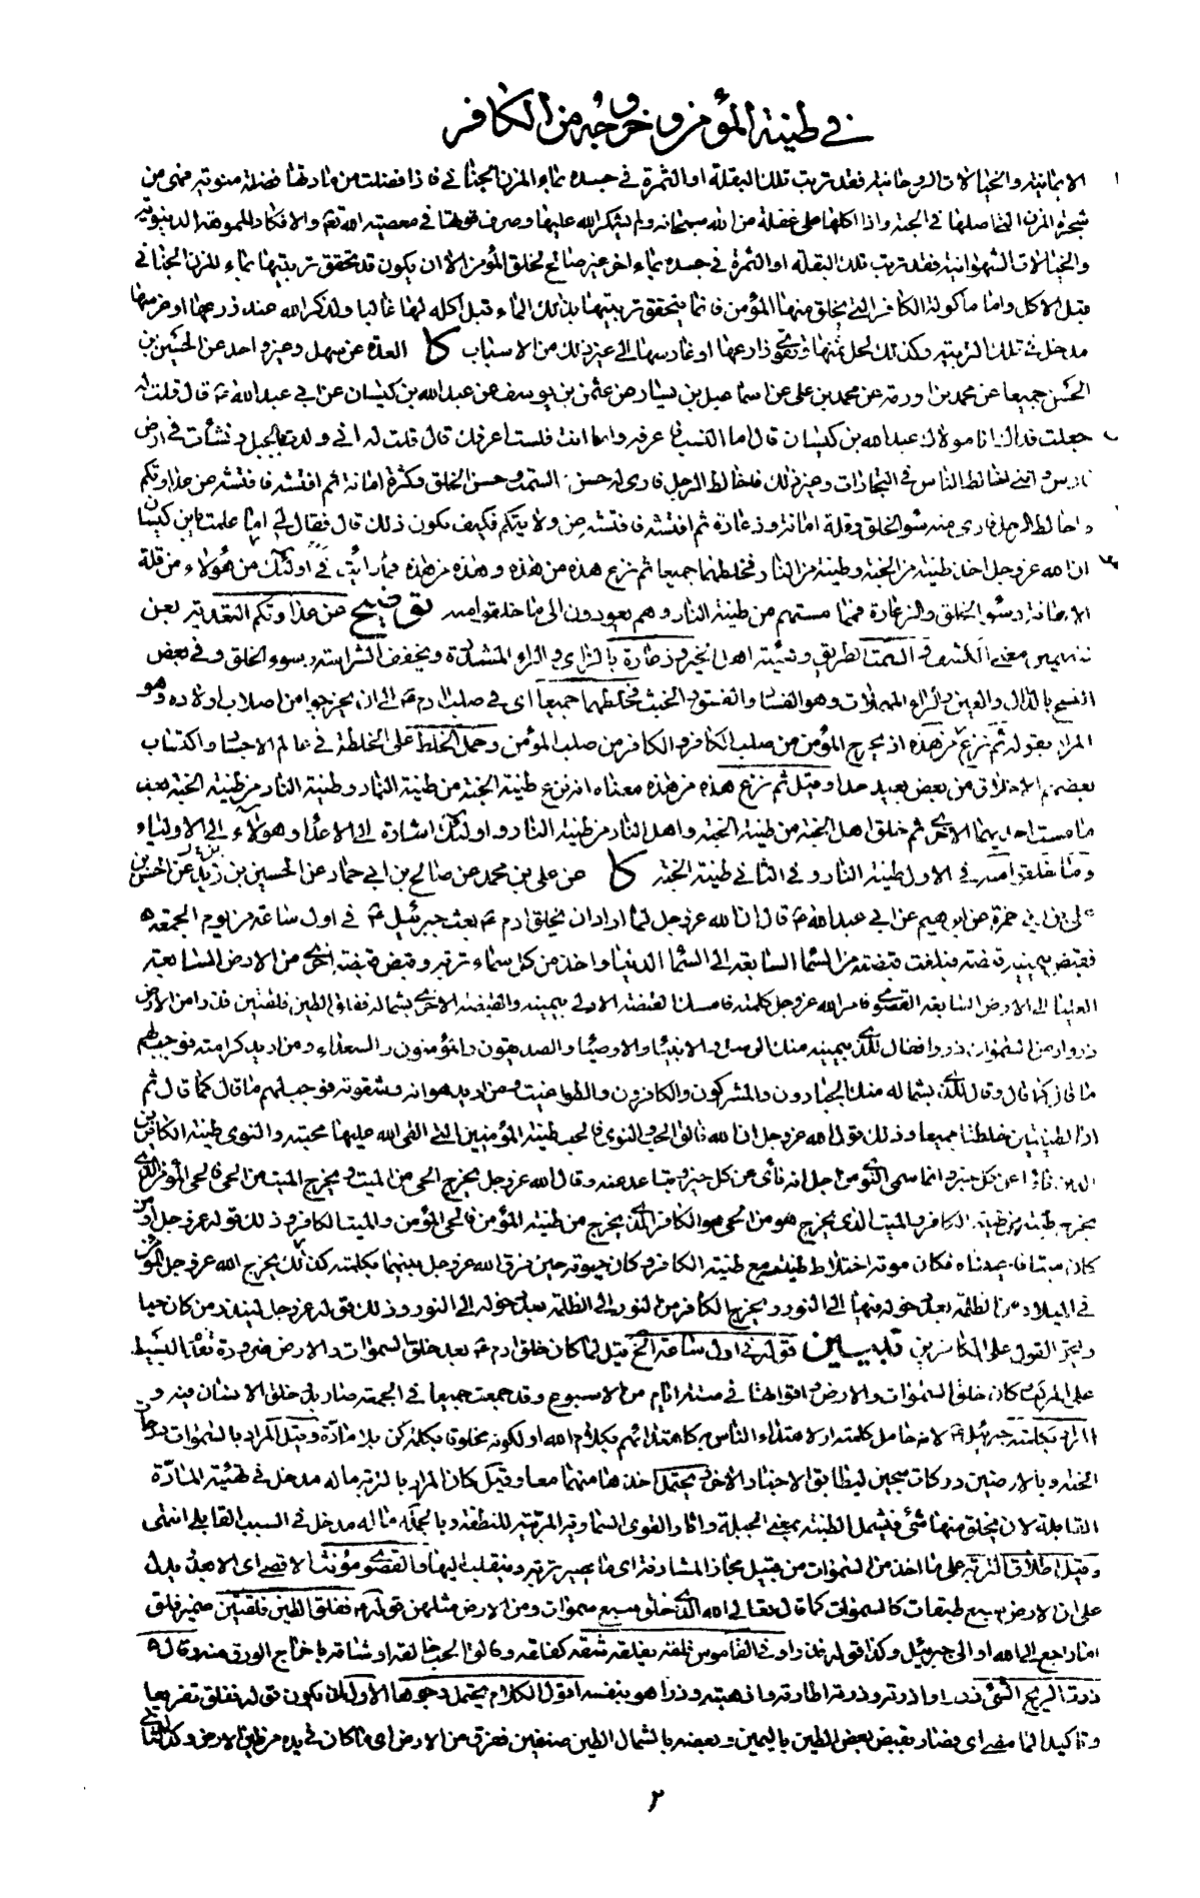 في طينة المؤمن وخروجه من الكافر
الايمانية والخيالات الروحانية فقد تربت تلك البقلة او الثمرة في جسده بماء المزن الجناني فاذا فضلت من مادتها فضلة منوية فهي من
شجرة المزن التي اصلها في الجنة واذا اكلها على غفلة من الله سبحانه ولم يشكر الله عليها وصرف قوتها في معصية الله تعالى والافكار المموهة الدنيوية
والخيالات الشهوانية فقد تربت تلك البقلة او الثمرة في جسده بماء اخر غير صالح لخلق المؤمن الا ان يكون قد تحقق تربيتها بماء المزن الجناني
قبل الاكل واما ماكولة الكافر التي يخلق منها المؤمن فانما يتحقق تربيتها بذلك الماء قبل اكله لها غالبا ولذكر الله عند زرعها او غرسها
مدخل في تلك التربية وكذلك لحل ثمنها وتقوى زارعها او غارسها الى غير ذلك من الاسباب كا العدة عن سهل وغير واحد عن الحسين بن
الحسن جميعا عن محمد بن اورمة عن محمد بن علي عن اسماعيل بن يسار عن عثمن بن يوسف عن عبد الله بن كيسان عن ابي عبد الله ع قال قلت له
جعلت فداك انا مولاك عبد الله بن كيسان قال اما النسب فاعرفه واما انت فلست اعرفك قال قلت له اني ولدت بالجبل ونشأت في ارض
فارس وانني اخالط الناس في التجارات وغير ذلك فاخالط الرجل فارى له حسن السمت وحسن الخلق وكثرة امانة ثم افتشه فافتشه عن عداوتكم
واخالط الرجل فارى منه سوء الخلق وقلة امانة وزعارة ثم افتشه فافتشه عن ولايتكم فكيف يكون ذلك قال فقال لي اما علمت يابن كيسان
ان الله عز وجل اخذ طينة من الجنة وطينة من النار فخلطهما جميعا ثم نزع هذه من هذه وهذه من هذه فما رأيت في اولئك من
من طينة النار وهم يعودون الى ما خلقوا منه توضيح عن عداوتكم التعدية بعن
معنى الكشف والسمت الطريق وهيئة اهل الخير وزعارة بالزاي والراء المشددة ويخفف الشراسة وسوء الخلق وفي بعض
النسخ بالدال والعين والراء المهملات وهو الفساد والفسق والخبث فخلطهما جميعا اي في صلب ادم ع الى ان يخرجوا من اصلاب اولاده وهو
المراد بقوله ثم نزع هذه من هذه اذ يخرج المؤمن من صلب الكافر والكافر من صلب المؤمن وحمل الخلط على الخلطة في عالم الاجساد واكتساب
بعضهم الاخلاق من بعض بعيد جدا وقيل ثم نزع هذه من هذه معناه انه نزع طينة الجنة من طينة النار وطينة النار من طينة الجنة بعد
ما مست احديهما الاخرى ثم خلق اهل الجنة من طينة الجنة واهل النار من طينة النار واولئك اشارة الى الاعداء وهؤلاء الى الاولياء
وما خلقوا منه في الاول طينة النار وفي الثاني طينة الجنة كا عن علي بن محمد عن صالح بن ابي حماد عن الحسين بن زيد عن الحسن بن
علي بن ابي حمزة عن ابرهيم عن ابي عبد الله ع قال ان الله عز وجل لما اراد ان يخلق ادم ع بعث جبرئيل ع في اول ساعة من يوم الجمعة
فقبض بيمينه قبضة فبلغت قبضته من السماء السابعة الى السماء الدنيا واخذ من كل سماء تربة وقبض قبضة اخرى من الارض السابعة
العليا الى الارض السابعة القصوى فامر الله عز وجل كلمته فامسك القبضة الاولى بيمينه والقبضة الاخرى بشماله ففلق الطين فلقتين فذرا من الارض
ذروا ومن السموات ذروا فقال للذي بيمينه منك الرسل والانبياء والاوصياء والصديقون والمؤمنون والسعداء ومن اريد كرامته فوجب لهم
ما قال كما قال وقال للذي بشماله منك الجبارون والمشركون والكافرون والطواغيت ومن اريد هوانه وشقوته فوجب لهم ما قال كما قال ثم
ان الطينتين خلطتا جميعا وذلك قول الله عز وجل ان الله فالق الحب والنوى فالحب طينة المؤمنين التي القى الله عليها محبته والنوى طينة الكافرين
الذين نأوا عن كل خير وانما سمي النوى من اجل انه نأى عن كل خير وتباعد عنه وقال الله عز وجل يخرج الحي من الميت ويخرج الميت من الحي فالحي المؤمن الذي
يخرج طينته من طينة الكافر والميت الذي يخرج هو من الحي هو الكافر الذي يخرج من طينة المؤمن فالحي المؤمن والميت الكافر وذلك قوله عز وجل او من
كان ميتا فاحييناه فكان موته اختلاط طينته مع طينة الكافر وكان حيوته حين فرق الله عز وجل بينهما بكلمته كذلك يخرج الله عز وجل المؤمن
في الميلاد من الظلمة بعد دخوله فيها الى النور ويخرج الكافر من النور الى الظلمة بعد دخوله الى النور وذلك قوله عز وجل لينذر من كان حيا
ويحق القول على الكافرين تبيين قوله في اول ساعة الخ قيل لما كان خلق ادم ع بعد خلق السموات والارض ضرورة تقدم البسيط
على المركب كان خلق السموات والارض واقواتها في ستة ايام من الاسبوع وقد جمعت جميعا في الجمعة صار بدو خلق الانسان فيه و
المراد بكلمته جبرئيل ع لانه حامل كلمته او لاهتداء الناس به كاهتدائهم بكلام الله او لكونه مخلوقا بكلمة كن بلا مادة وقيل المراد بالسموات درجات
الجنة وبالارضين دركات سجين ليطابق الاخبار الاخر ويحتمل اخذها منهما معا وقيل كان المراد بالتربة ما له مدخل في تهيئة المادة
القابلة لان يخلق منها شئ فيشمل الطينة بمعنى الجبلة واثار القوى السماوية المربية للنطفة وبالجملة ما له مدخل في السبب القابلي انتهى
وقيل اطلاق التربة على ما اخذ من السموات من قبيل مجاز المشارفة اي ما يصير تربة وينقلب اليها والقصوى مؤنث الاقصى اي الابعد يدل
على ان الارض سبع طبقات كالسموات كما قال تعالى الله الذي خلق سبع سموات ومن الارض مثلهن قوله ع ففلق الطين فلقتين ضمير فلق
اما راجع الى الله او الى جبرئيل وكذا قوله فذرا وفي القاموس فلقه يفلقه شقه كفلقه وفالق الحب خالقه او شاقه باخراج الورق منه وقال
ذرت الريح الشئ ذروا واذرته وذرته اطارته واذهبته وذرا هو بنفسه اقول الكلام يحتمل وجوها الاول ان يكون قوله ففلق تفريعا
وتاكيدا لما مضى اي فصار بقبض بعض الطين باليمين وبعضه بالشمال الطين صنفين ففرق من الارض اي ما كان في يده من طين الارض وكذا الثاني
٢